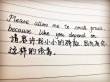 Please allow me to small proud
because like you depend on
请容许我小小的骄傲，因为有你
这样的依靠。